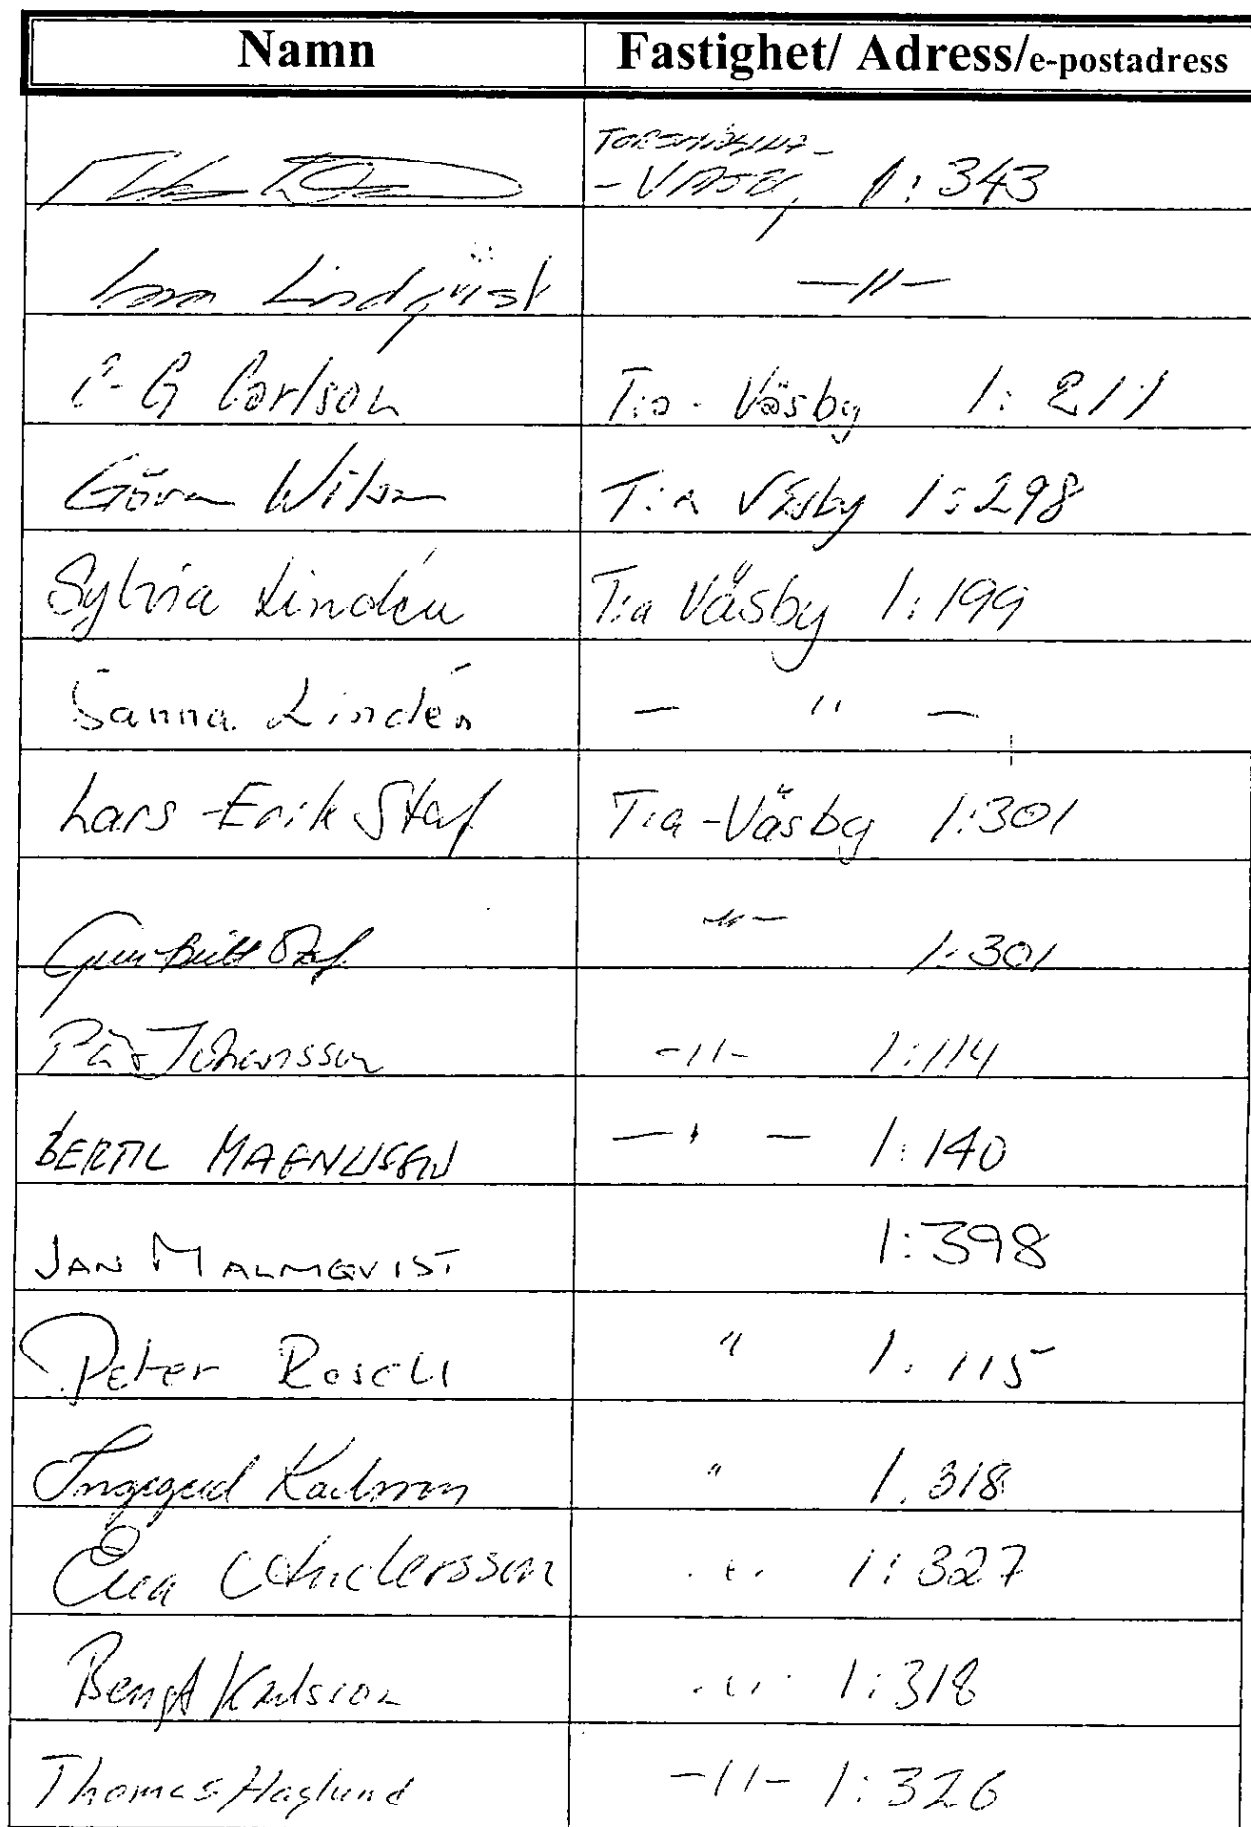 Namn Fastighet/ Adress/e-postadress
-VÄSBY 1:343
Lindqvist —〃—
C-G Carlson T:a - Väsby 1:211
Göran Wilson T:a Väsby 1:298
Sylvia Lindén T:a Väsby 1:199
Sanna Lindén — 〃 —
Lars-Erik Staf T:a-Väsby 1:301
Gun-Britt Staf —〃— 1:301
Pär Johansson -〃- 1:114
BERTIL MAGNUSSON — 〃 — 1:140
JAN MALMQVIST 1:398
Peter Rosell 〃 1:115
Ingegerd Karlsson 〃 1:318
Eva Andersson 〃 1:327
Bengt Karlsson -〃- 1:318
Thomas Haglund -〃- 1:326